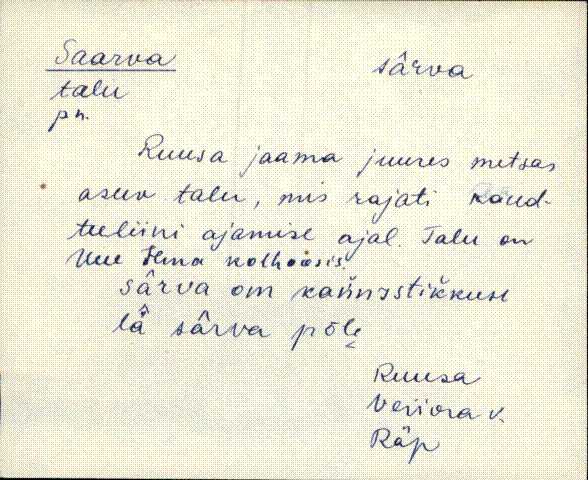 Saarva sârva
talu
pn.
Ruusa jaama juures metsas
asuv talu, mis rajati raud-
teeliini ajamise ajal. Talu on
Uue Elma kolhoosis.
sârva om kań̆nistik̆kuse
lȧ̂ sârva pōle
Ruusa
Veriora v.
Räp